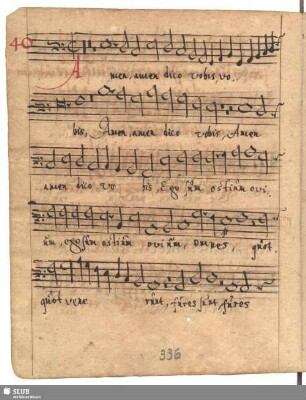 40
Amen, amen dico vobis, vo.
bis, Amen, amen dico vobis, Amen
amen, dico vo bis, Ego sum ostium ovi.
um, ego sum ostium ovium, omnes, quot.
quot vene runt, fures sunt fures
336
SLUB